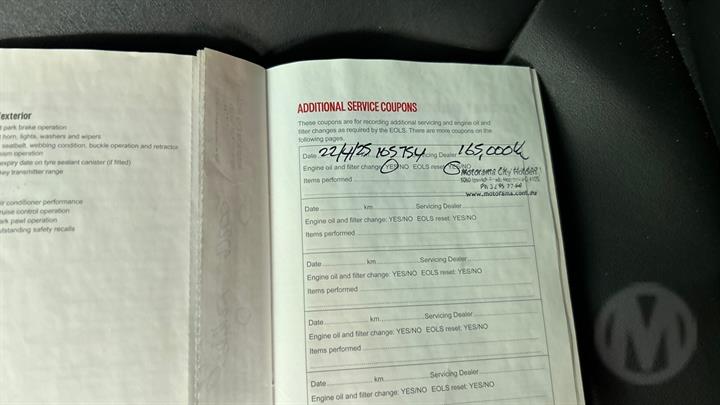 exterior
park brake operation
horn, lights, washers and wipers
seatbelt, webbing condition, buckle operation and retractor
operation
expiry date on tyre sealant canister (if fitted)
key transmitter range
air conditioner performance
cruise control operation
park pawl operation
outstanding safety recalls
ADDITIONAL SERVICE COUPONS
These coupons are for recording additional servicing and engine oil and
filter changes as required by the EOLS. There are more coupons on the
following pages.
Date 22/4/25 165754 Servicing Dealer 165,000k
Engine oil and filter change: YES/NO EOLS reset: YES/NO
Motorama City Holden
Items performed
Ph
www.motorama.com.au
Date km Servicing Dealer
Engine oil and filter change: YES/NO EOLS reset: YES/NO
Items performed
Date km Servicing Dealer
Engine oil and filter change: YES/NO EOLS reset: YES/NO
Items performed
Date km Servicing Dealer
Engine oil and filter change: YES/NO EOLS reset: YES/NO
Items performed
Date km Servicing Dealer
Engine oil and filter change: YES/NO EOLS reset: YES/NO
Items performed
M